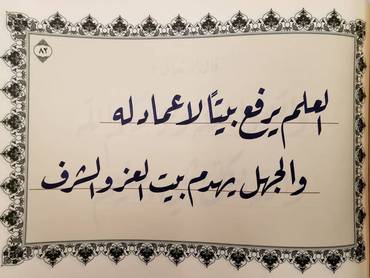 ٨٢
العلم يرفع بيتاً لا عماد له
والجهل يهدم بيت العز والشرف